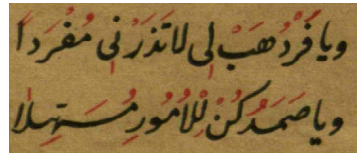 ويا فَرْدُ هَبْ لِي لا تَذَرْنِي مُفْرَداً
ويا صَمَدُ كُنْ لِلْأُمُورِ مُسَهِّلا